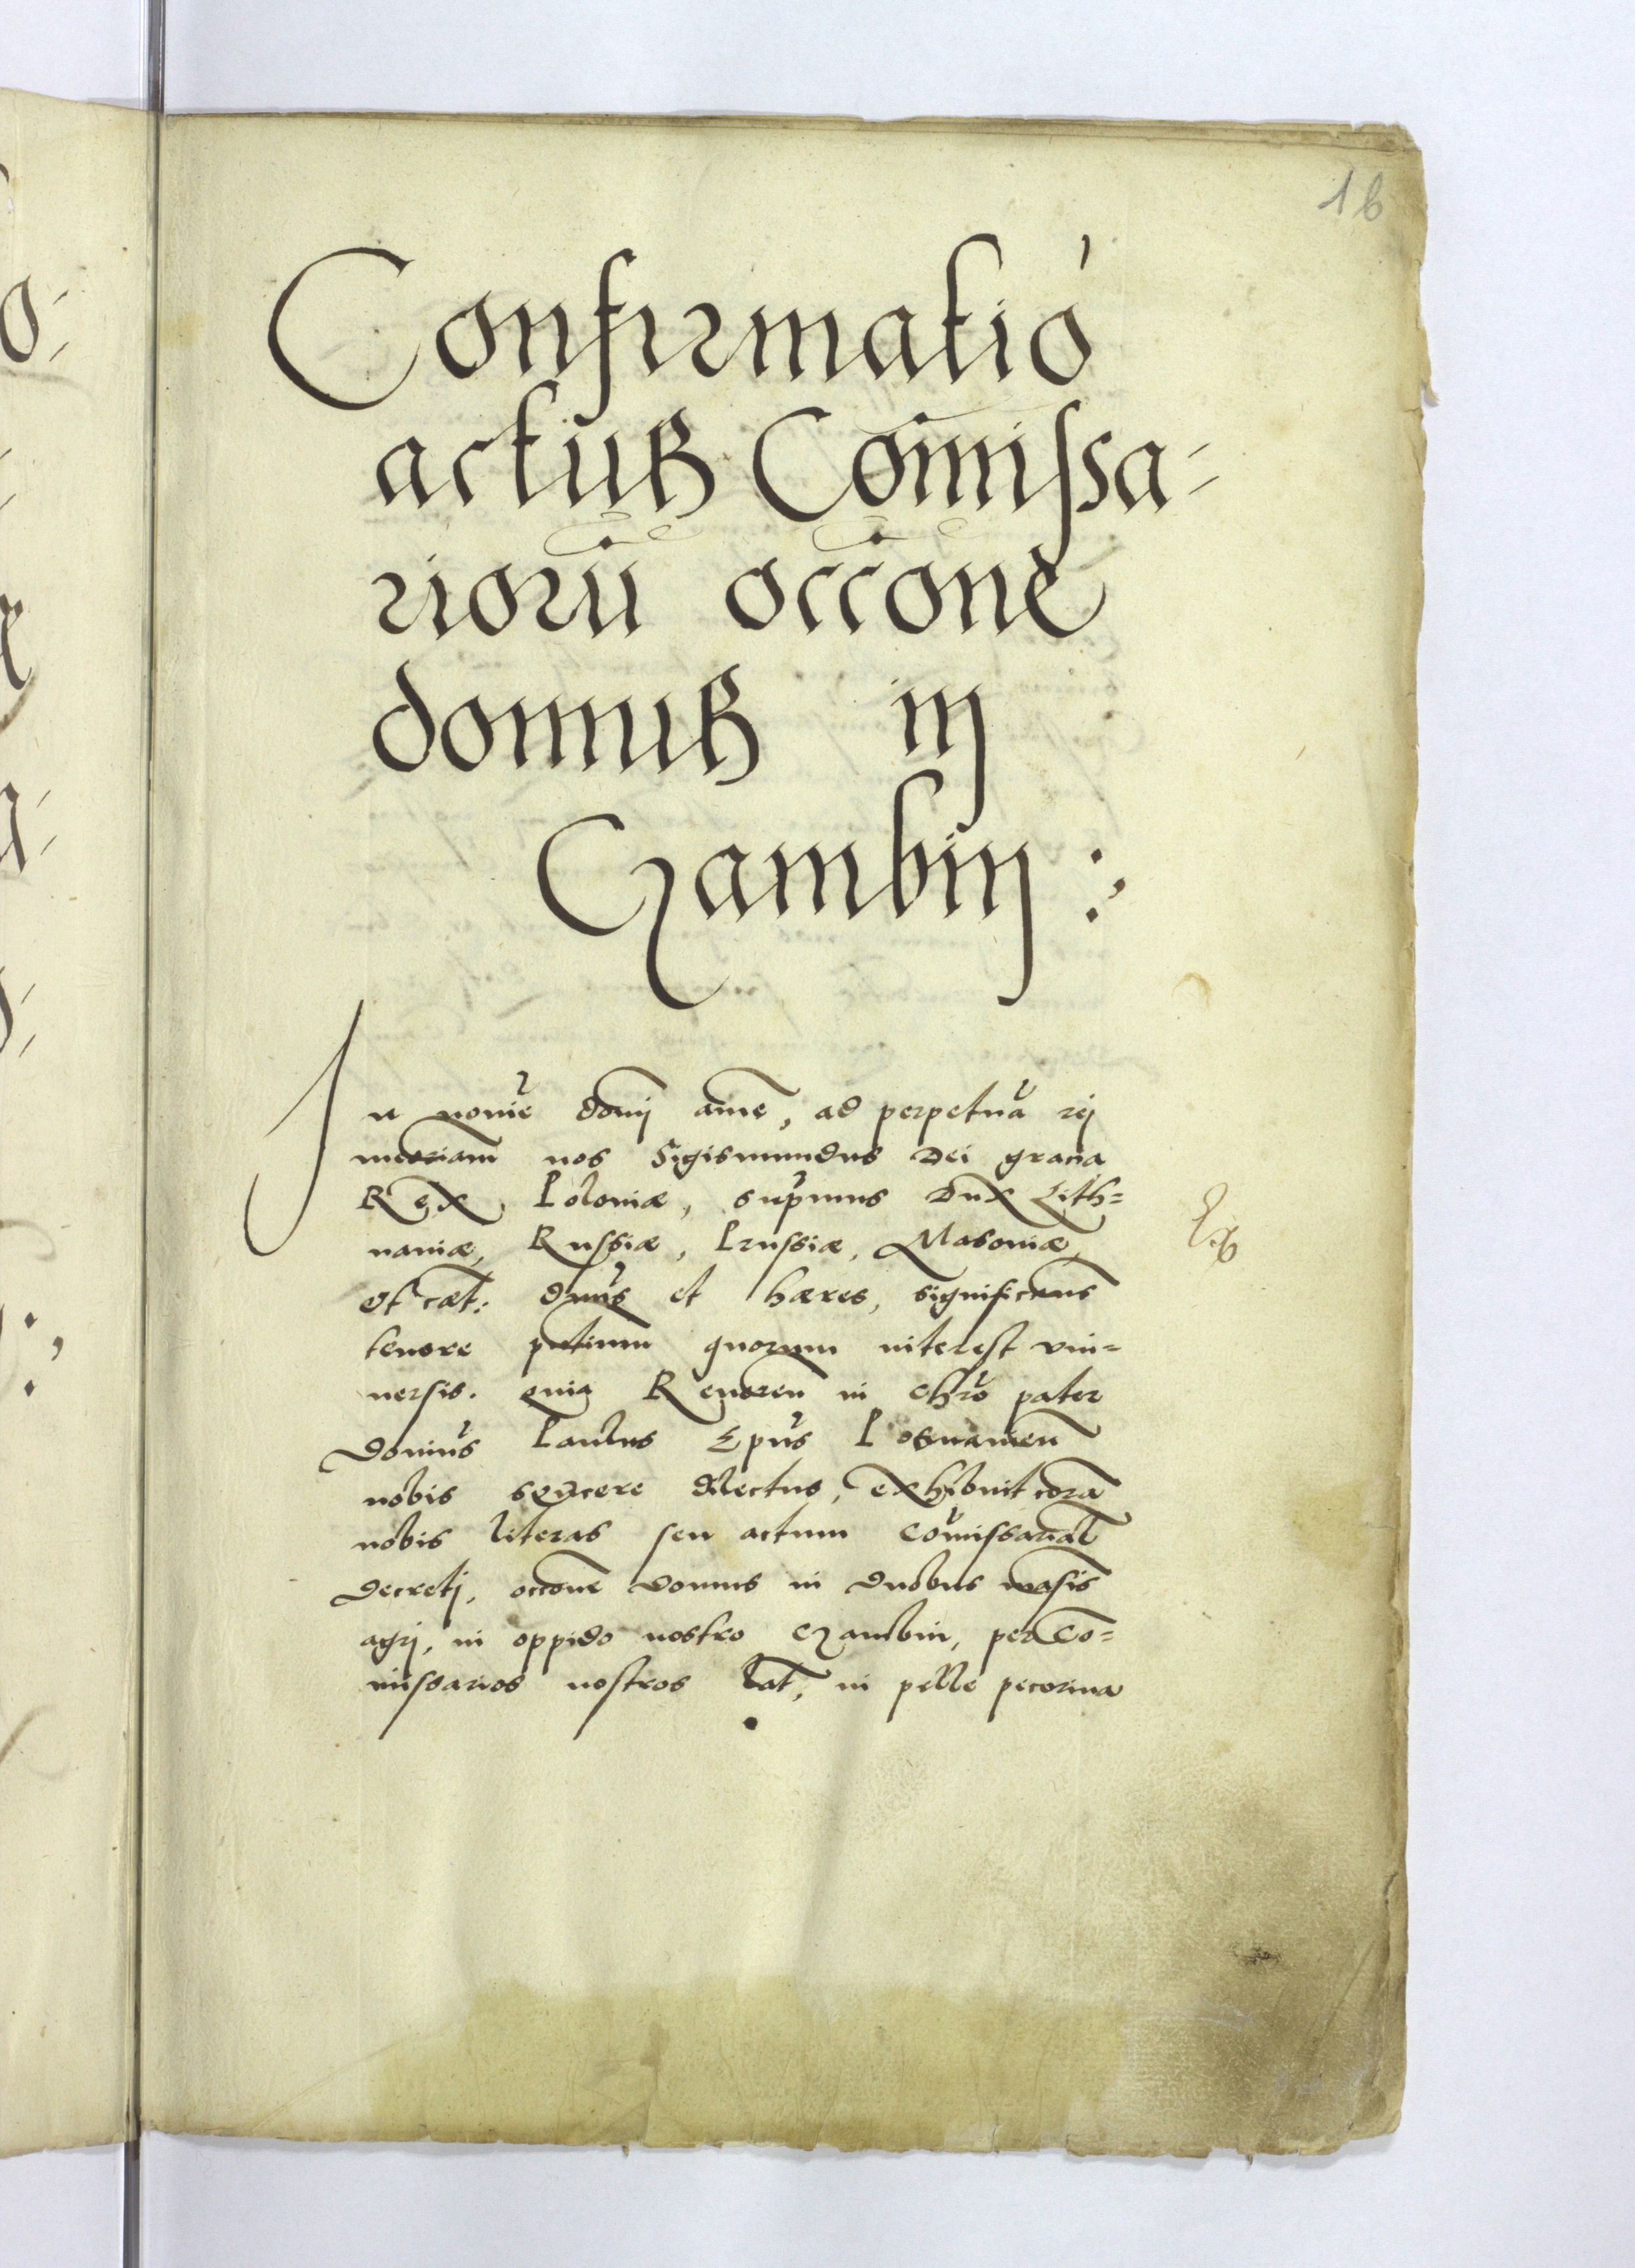 16
Confirmatio
actus Com̄issa-
riorū occōne
domus in
Czambin :,
In nomīe domī amē, ad perpetuā rej
memoriam nos Sigismundus Dei gracia
Rex Poloniæ, supmus Dux Lith=
uaniæ, Russiæ, Prussiæ, Masoniæ,
et cæt: dnus et hæres, significamus
tenore pntium quorum interest vni=
uersis. quia Reueren in Chro pater
Domiūs Paulus Epūs Posnanien
nobis syncere dilectus, exhibuit corā
nobis literas seu actum Com̄issarial
Decretj, occōne domus in duobus masis
agrj, in oppido nostro Czambin, per Co=
missarios nostros lat, in pelle pecorina